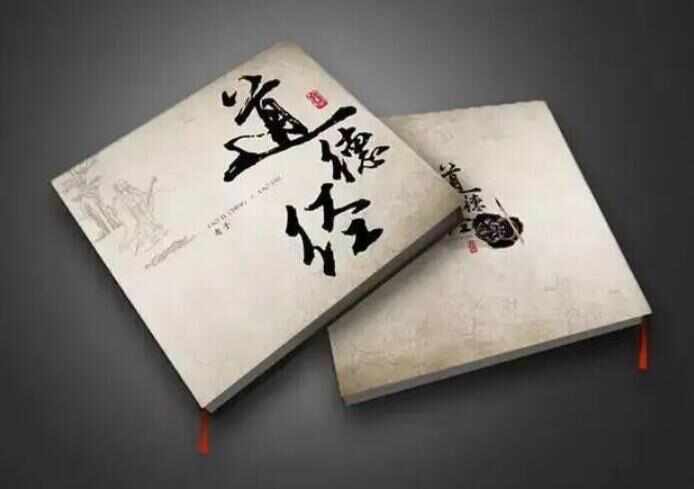 道德经
老子
道德经